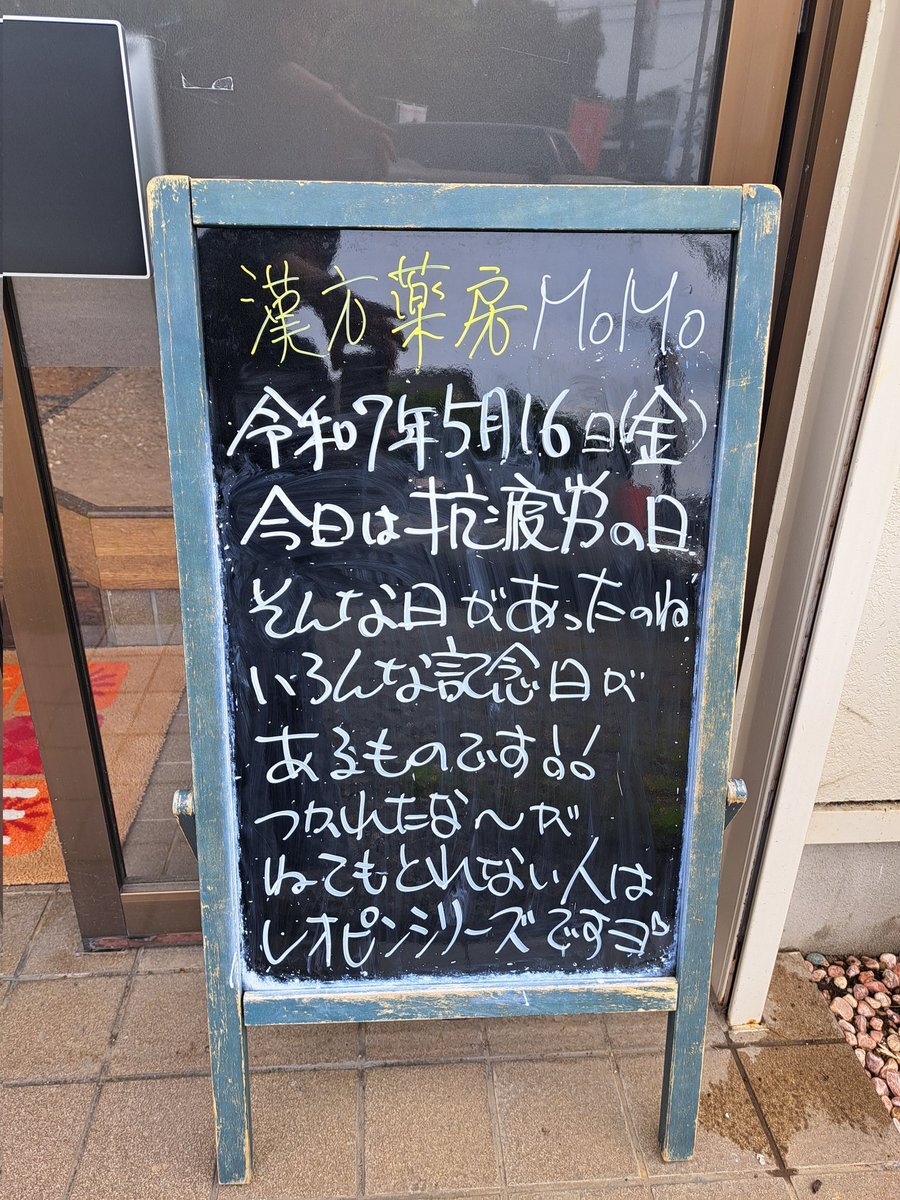 漢方薬房 MoMo
令和7年5月16日(金)
今日は抗疲労の日
そんな日があったのね
いろんな記念日が
あるものです!!
つかれたな〜が
ねてもとれない人は
レオピンシリーズですヨ♪